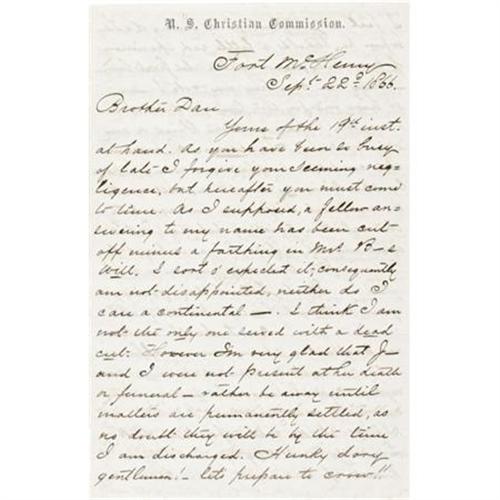 U. S. Christian Commission.
Fort McHenry
Sept. 22d 1866.
Brother Dan
Yours of the 19th inst.
at hand. As you have been so busy
of late I forgive your seeming neg-
ligence, but hereafter you must come
to time. As I supposed, a fellow an-
swering to my name has been cut-
off minus a farthing in Mrs. B—s
Will. I sort o' expected it; consequently
am not disappointed, neither do I
care a continental —. I think I am
not the only one served with a dead
cut. However I'm very glad that J—
and I were not present at her death
or funeral — rather be away until
matters are permanently settled, as
no doubt they will be by the time
I am discharged. Hunky dory
gentlemen! — let's prepare to crow!!!